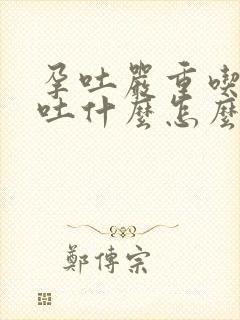 孕吐嚴重喫
吐什麼怎麼
鄭傳宗